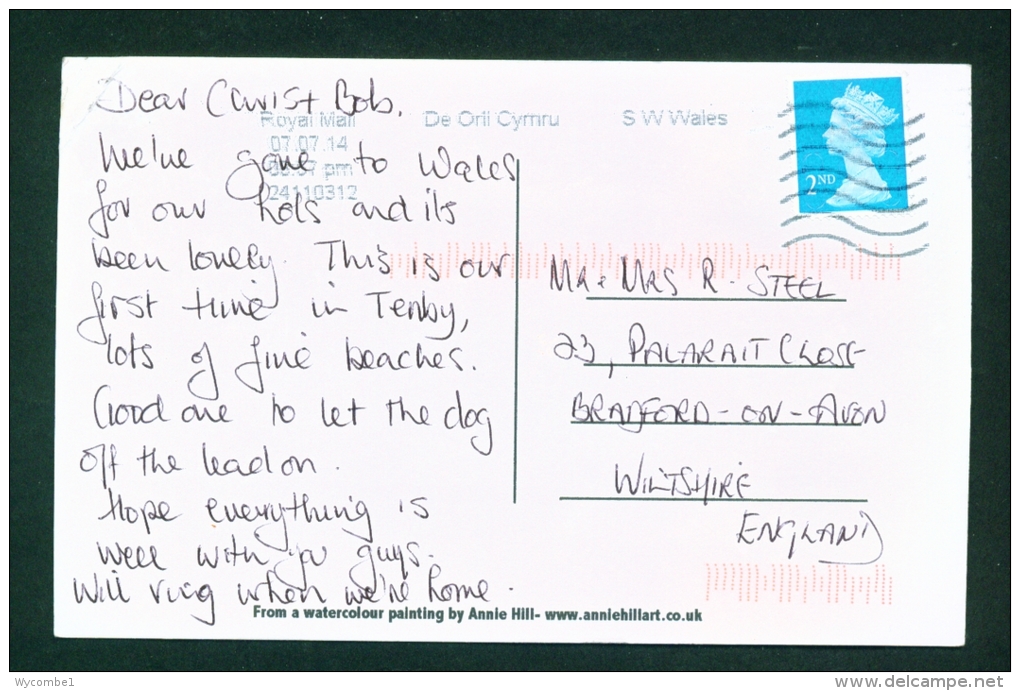 Dear Chris + Bob,
Royal Mail De Orll Cymru S W Wales
07.07.14
pm
24110312
2ND
We've gone to Wales
for our hols and its
been lovely. This is our
first time in Tenby,
lots of fine beaches.
Good one to let the dog
off the lead on.
Hope everything is
well with you guys.
Will ring when we're home.
MR & MRS R. STEEL
23, PALARAIT CLOSE
BRADFORD-ON-AVON
WILTSHIRE
ENGLAND
From a watercolour painting by Annie Hill- www.anniehillart.co.uk
Wycombe1
www.delcampe.net